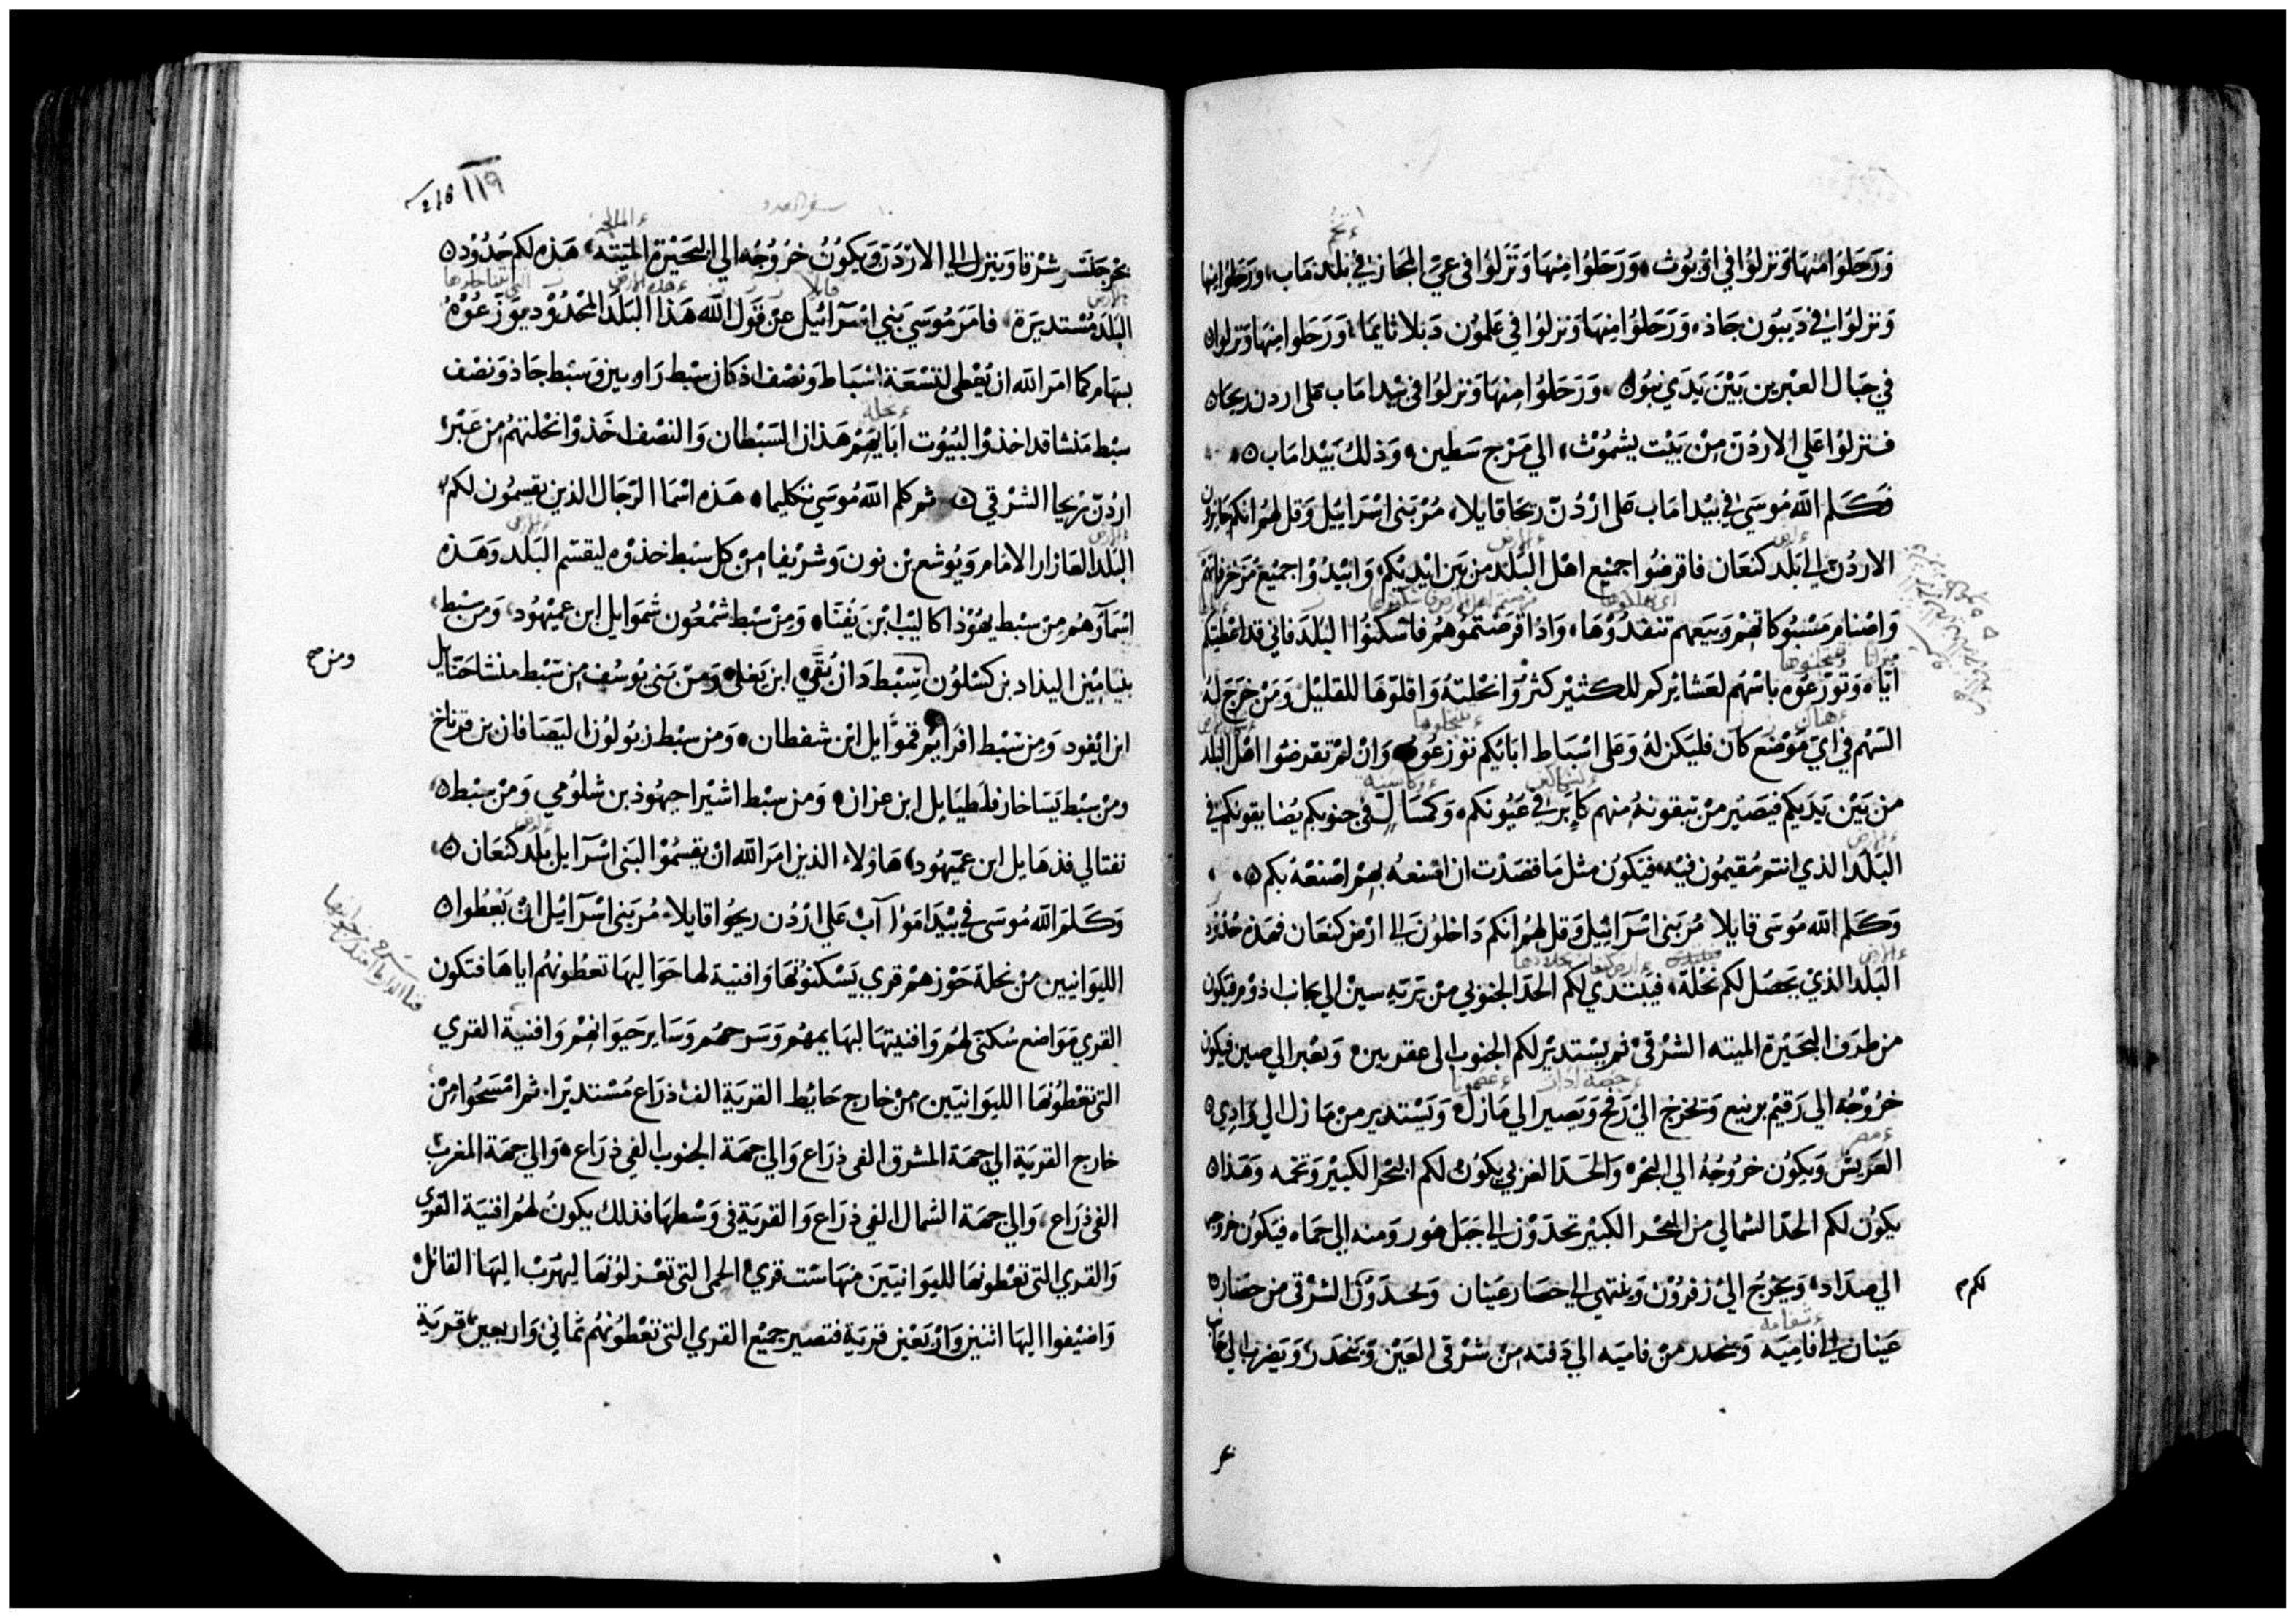 وَرَحَلوُا مِنهَا وَنزلوُا في اوْبوُث، وَرَحَلوُا مِنْهَا وَنَزَلوُا فى عيّ المجَاز في بَلد مَاب، ورَحَلوُا منها
وَنزلوُا في دَيبُون جَاذ، وَرَحَلوُا مِنهَا وَنزلوُا في عَلموُن دَبلاثايمَا، وَرَحَلوا مِنهَا وَنزلوا
في جبَال العبْرين بَيْنَ يَدَي نبُوا، وَرَحَلوُا مِنهَا وَنزلوُا فى بيْدا مَاب عَلى اردن يحا
فنزلوُا عَلي الارْدُنّ مِنْ بَيْت يشمُوْث، الي مَرْج سَطين، وَذلكَ بَيْدا مَاب
فَكَلم الله مُوسَي في بيْدا مَاب عَلى ارْدُنّ ريحَا قايلا، مُرْ بَني اسْرَايئل وَقل لهُم انكم جَايزون
الاردُن الي بَلد كنعَان فاقرضُوا جميْع اهْل البَلد من بَين ايْديْكم، وَابيْدُوْا جميْع مَزخرفاتهم
وَاصْنام مَسْبُوكاتهِمْ وَبيَعهم تنفدُوْهَا، وَاذا قرَضتمُوْهُم فاسْكنُوُا البَلدَ فاني قد اعْطيتكم
ايّاه وَتوَزّعوُه باسْهُم لعَشايْركم للكثيْر كثرُوْا نحْلتهُ وَاقلوْهَا للقليْل وَمَنْ خَرَجَ لهُ
السَهْم في ايّ مَوْضَع كان فليَكن لهُ وَعَلى اسْبَاط ابَايْكم توَزعُوه وَانْ لمْ تقرضوْا اهْل البلد
من بَيْن يَدَيكم فيَصيْر مَنْ تبقونهُ مِنهم كابر في عَيُونكم، وَكمسَال في جنوبكم يُضايقونكم في
البَلد الذي انتم مُقيمُون فيْه، فيَكوُن مثل مَا قصَدْت ان اصْنعهُ بهم اصْنعْهُ بكم
وَكلم الله مُوسَى قايلا مُرْ بَني اسْرَايئل وَقل لهُم انكم دَاخلوُن الي ارْض كنعَان فهَذه حُدُوْد
البَلد الذيْ يَحصُل لكم نحْلة، فيَبْتدي لكم الحَدّ الجَنوبي مِنْ بَرّيّه سينْ الي جَانب اذوْم فيَكون
من طرَف البحَيْرة الميته الشرْقيْ ثم يسْتديْر لكم الجنوب الى عقربين، وَيعْبر الي صين فيكون
خرُوْجُه الي رَقيْم برنيع وَيخرج اليْ رَفح وَيَصير الي مَازل، وَيَسْتدير منْ مَازل الي وَادي
العَريش وَيكوُن خروُجُهُ الي البَحْر، وَالحَدّ الغرْبي يكوُن لكم البَحْر الكبيْر وَتخمه وَهَذا
يكوُن لكم الحَدّ الشمالي من البَحْر الكبيْر تحدّوْن الي جَبَل هُور وَمنه الي حمَاه، فيَكوُن خروجه
الي صدَاد، وَيخرجُ اليْ زفروُن وَينتهي الي حصَار عَينان وَتحدّوْن الشرْقى من حصَار
لكم
عَينان الي فامِيَه وَينحَدر منْ فاميَه الي دَفنه مِنْ شرْقى العَيْن وَينحَدرَ وَيَضرب الي
١١٩
216
سفر العدد
بحْر جَلسَر شرْقا وَينزل الي الارْدُنّ وَيكوُنُ خرُوُجُه الي البحَيْرة الميَته، هَذه لكم حُدُوْد
البَلد مُسْتديرَة، فامَرَ مُوسَي بَني اسْرَائيْل عنْ قوَل الله هَذا البَلد المحْدُوْد توَزّعوُهْ
بسهَام كما امَر الله ان يُعْطي لتسْعَة اسْبَاط وَنصْف اذ كان سبْط رَاوبين وَسبْط جَاذ وَنصْف
سبْط مَنشا قد اخذوْا لبُيُوت ابَايهِمْ هَذان السَبْطان وَالنصْف اخَذوْا نحْلتهُمْ من عَبْر
اردُنّ يريحا الشرْقي ثم كلم الله مُوسَي تكليما، هَذه اسْما الرّجَال الذين يقسمُون لكم
البَلد العَازار الامَام وَيُوشع بْن نون وَشريْفا منْ كل سبْط خذوْه ليقسّم البَلد وَهَذه
اسْمآؤهُم مِنْ سبْط يهُوْذا كاليْب ابْن يَفنّاه، وَمِنْ سبْط شمْعُون شموَايل ابن عميْهوُد، وَمن سبْط
ومن صح
بنيَامِيْن اليذاد بن كسْلوُن سِبْط دَان بُقّي ابن يَغلى، وَمنْ بَني يوُسُف من سَبْط منشا حَنّايل
ابن ايْفود وَمن سَبْط افرَايْم قموَّايل ابْن شفطان، وَمن سبْط زبُولوُن اليَصَافان بن فرناخ
ومنْ سبْط يَسَاخار فلطيَايل ابن عزان، وَمن سبْط اشيْر احيهُوذ بن شلوُمي وَمنْ سبْط
نفتالي فذهَايل ابن عمّيهُود، هَاؤلاء الذين امَر الله انْ يقسمُوْا لبَني اسْرَايل بَلد كنعَان
وَكَلمَ الله مُوسَى في بَيْدَا مَوُآب عَلي ارْدُن ريحُوا قايلا، مُر بَني اسْرَايْل انْ يعْطوا
الليوَانيين منْ نحلة حَوْزهم قري يَسْكنوُنهَا وَافنيَة لها حَوَاليهَا تعطُونهُم اياهَا فتكون
القري مَوَاضع سُكنى لهُم وَافنيتهَا لبهَايمهُم وَسَرحهُم وَسَاير حَيوَانهِمْ وَافنيَة القري
التي تعْطُونهَا الليوَانيّين مِنْ خارج حَايْط القريَة الف ذرَاع مُسْتديْرا، ثم امْسَحُوا مِنْ
خارج القريَة الي جهَة المشرق الفى ذرَاع وَالي جهَة الجنوب الفي ذرَاع، وَالي جهَة المغرب
الفى ذرَاع، وَالي جهَة الشمال الفي ذرَاع وَالقريَة في وَسْطهَا فذلك يكونُ لهُم افنيَة القري
وَالقري التي تعْطونهَا لليوَانيّينَ مِنهَا ست قريْ الحِمى التي تعْزلوُنهَا ليَهرُبْ اليهَا القاتل
وَاضيْفوا اليهَا اثنين وَارْبَعيْن قريَة فتصير جميْع القري التي تعْطوُنهُم ثمَاني وَاربعين قريَة